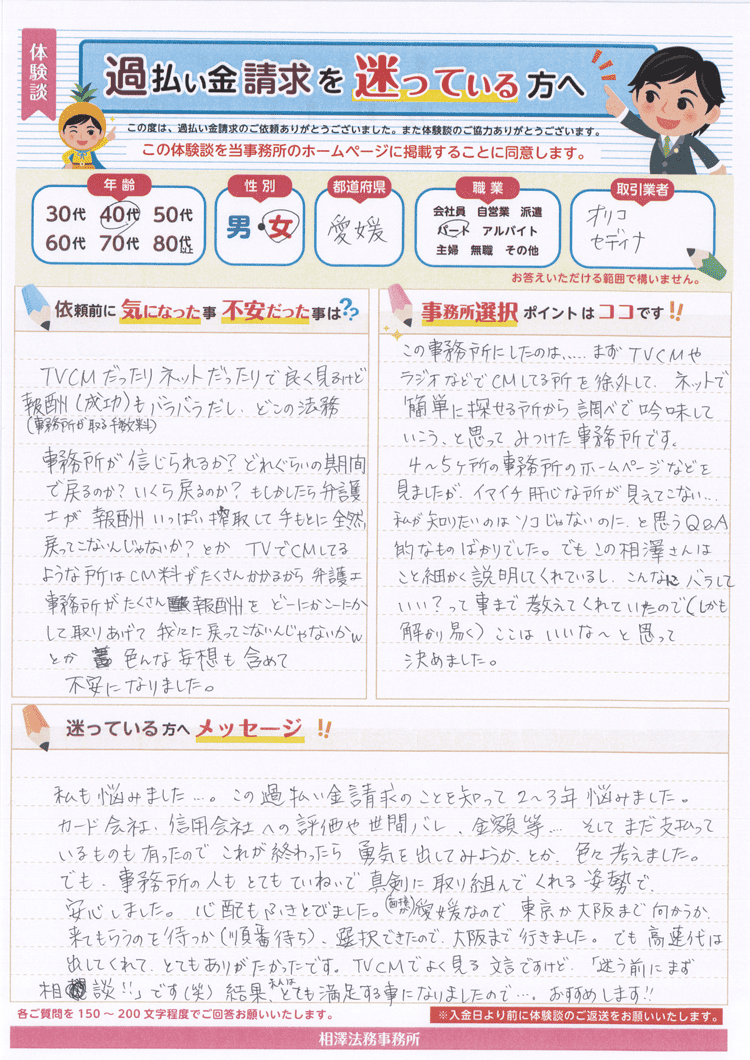 体験談
過払い金請求を迷っている方へ
この度は、過払い金請求のご依頼ありがとうございました。また体験談のご協力ありがとうございます。
この体験談を当事務所のホームページに掲載することに同意します。
年齢
30代 40代 50代
60代 70代 80代以上
性別
男・女
都道府県
愛媛
職業
会社員 自営業 派遣
パート アルバイト
主婦 無職 その他
取引業者
オリコ
セディナ
お答えいただける範囲で構いません。
依頼前に気になった事 不安だった事は??
TVCMだったりネットだったりで良く見るけど
報酬(成功)もバラバラだし、どこの法務
(事務所が取る手数料)
事務所が信じられるか?どれぐらいの期間
で戻るのか?いくら戻るのか?もしかしたら弁護
士が報酬いっぱい搾取して手もとに全然、
戻ってこないんじゃないか?とか TVでCMしてる
ような所はCM料がたくさんかかるから弁護士
事務所がたくさん報酬を どーにかこーにか
して取りあげて 我にに戻ってこないんじゃないかw
とか 色んな妄想も含めて
不安になりました。
事務所選択ポイントはココです!!
この事務所にしたのは、....まずTVCMや
ラジオなどでCMしてる所を除外して、ネットで
簡単に探せる所から調べて吟味して
いこう、と思って みつけた事務所です。
4〜5ヶ所の事務所のホームページなどを
見ましたが、イマイチ肝心な所が見えてこない...
私が知りたいのはソコじゃないのに、と思うQ&A
的なものばかりでした。でもこの相澤さんは
こと細かく説明してくれているし、こんなにバラして
いい?って事まで教えてくれていたので(しかも
解かり易く)ここはいいな〜と思って
決めました。
迷っている方へメッセージ!!
私も悩みました...。この過払い金請求のことを知って2〜3年悩みました。
カード会社、信用会社への評価や世間バレ、金額等... そしてまだ支払って
いるものも有ったので これが終わったら 勇気を出してみようか、とか、色々考えました。
でも、事務所の人もとてもていねいで真剣に取り組んでくれる姿勢で、
安心しました。心配もふきとびました。(面接)愛媛なので 東京か大阪まで向かうか、
来てもらうのを待つか(順番待ち)、選択できたので、大阪まで行きました。でも高速代は
出してくれて、とてもありがたかったです。TVCMでよく見る文言ですけど、「迷う前にまず
相談!!」です(笑) 結果、私はとても満足する事になりましたので...。おすすめします!!
各ご質問を150〜200文字程度でご回答お願いいたします。
※入金日より前に体験談のご返送をお願いいたします。
相澤法務事務所